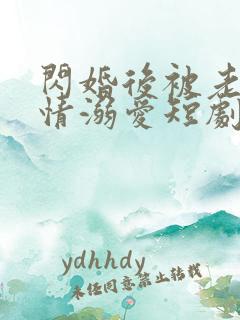 閃婚後被老
情溺愛短劇
ydhhdy
未經同意禁止轉載